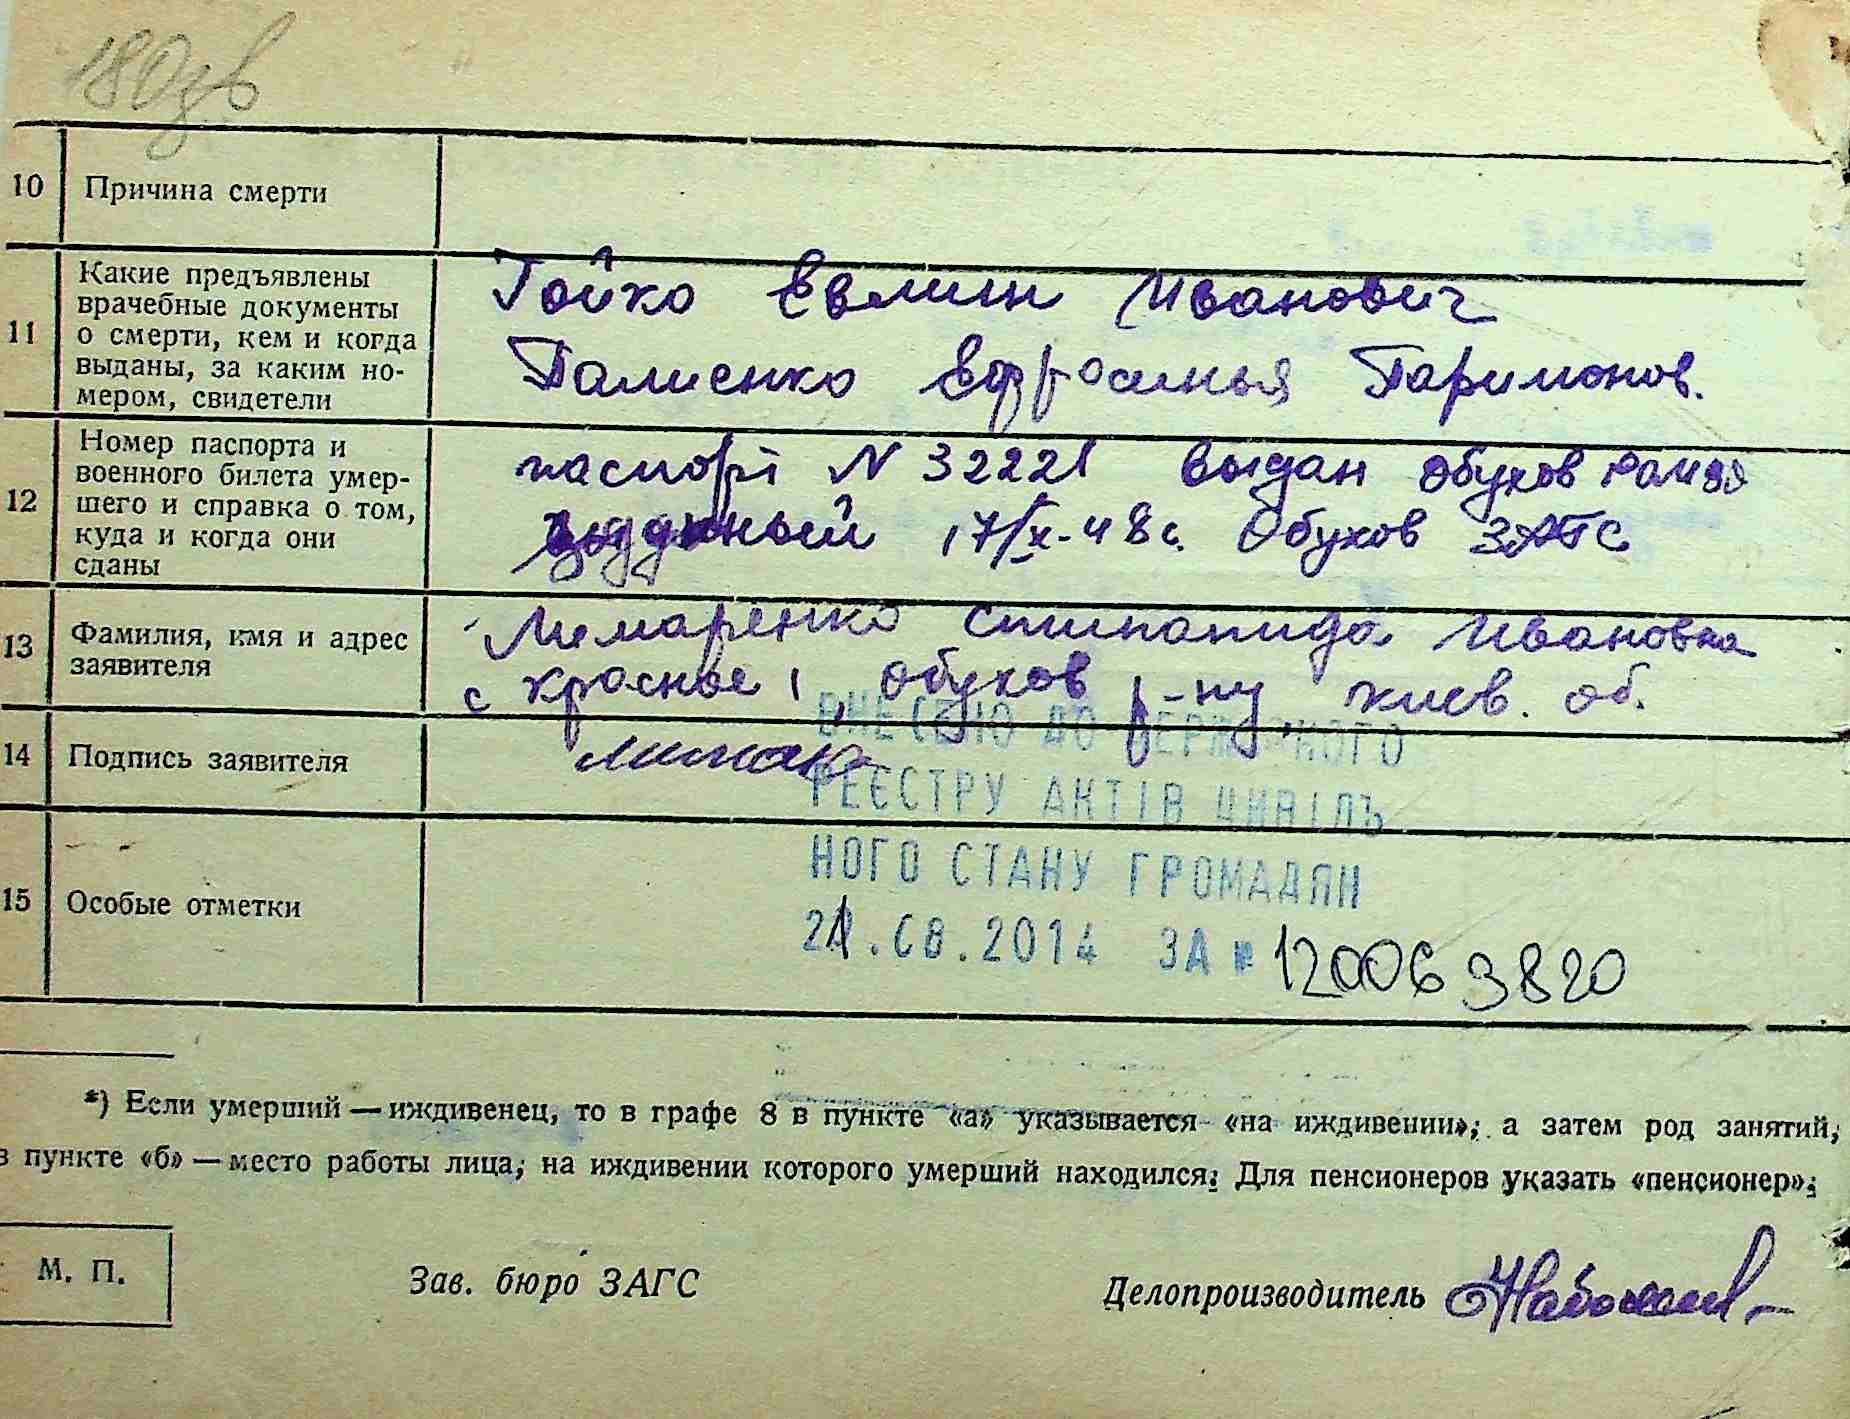 180зв
10 Причина смерти
11 Какие предъявлены
врачебные документы
о смерти, кем и когда
выданы, за каким но-
мером, свидетели
Гойко Евлин Иванович
Палиенко Ефросинья Паримонов.
12 Номер паспорта и
военного билета умер-
шего и справка о том,
куда и когда они
сданы
паспорт N 32221 выдан Обухов
17/X-48г. Обухов ЗАГС
13 Фамилия, имя и адрес
заявителя
Лимаренко Ивановна
с красное 1, Обухов р-ну киев. об.
14 Подпись заявителя
Лимар
15 Особые отметки
ВНЕСЕНО ДО ДЕРЖАВНОГО
РЕЄСТРУ АКТІВ ЦИВІЛЬ
НОГО СТАНУ ГРОМАДЯН
21.08.2014 ЗА № 12006 3820
*) Если умерший — иждивенец, то в графе 8 в пункте «а» указывается «на иждивении»; а затем род занятий,
в пункте «б» — место работы лица, на иждивении которого умерший находился. Для пенсионеров указать «пенсионер».
М. П.
Зав. бюро ЗАГС
Делопроизводитель